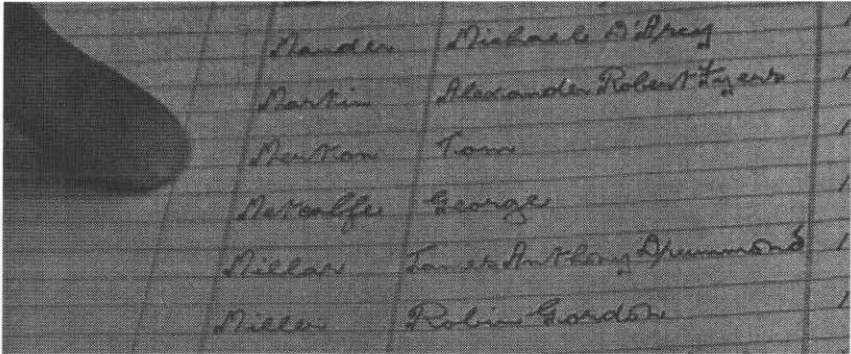 Mander Michael D'Arcy
Martin Alexander Robert Fyers
Merton Tom
Metcalfe George
Millar James Anthony Drummond
Miller Robin Gordon